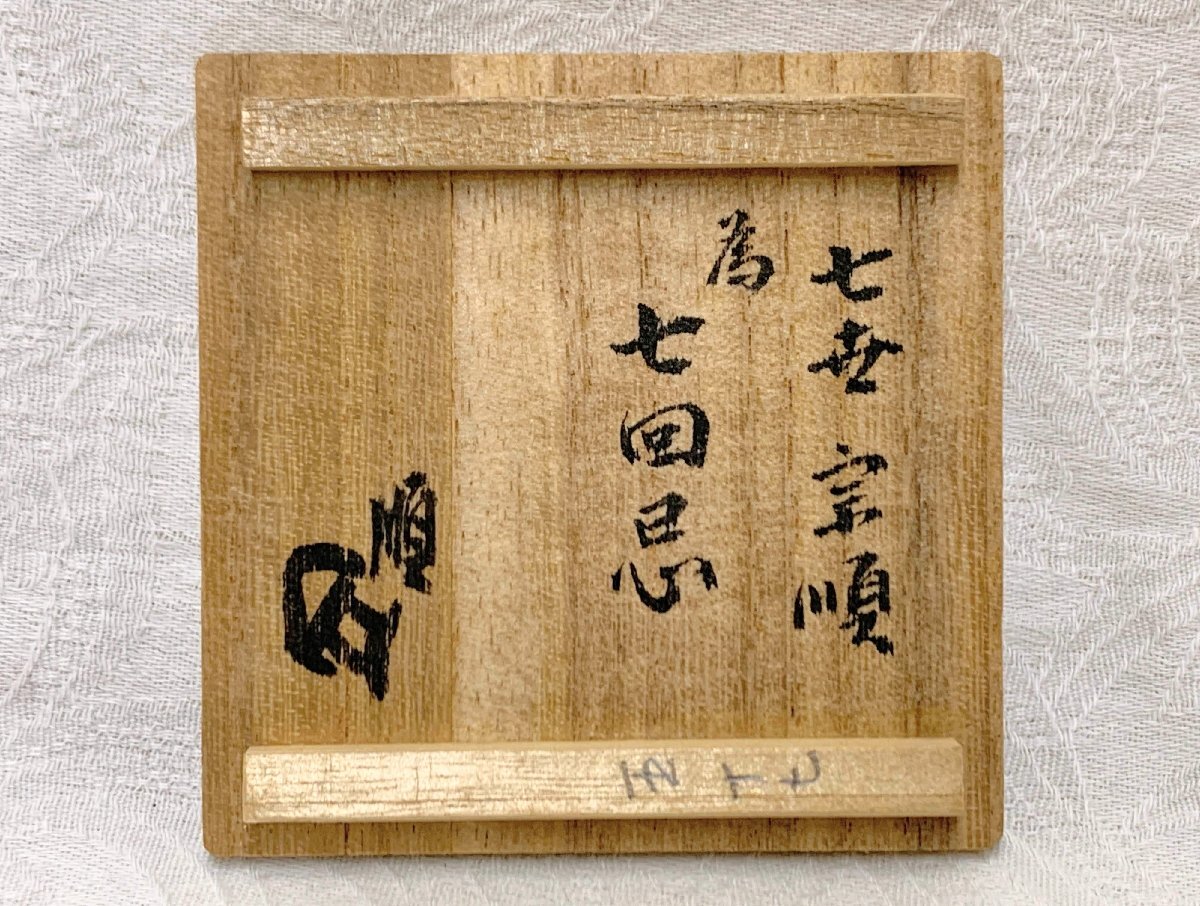 七世 宗順
為
七回忌
順